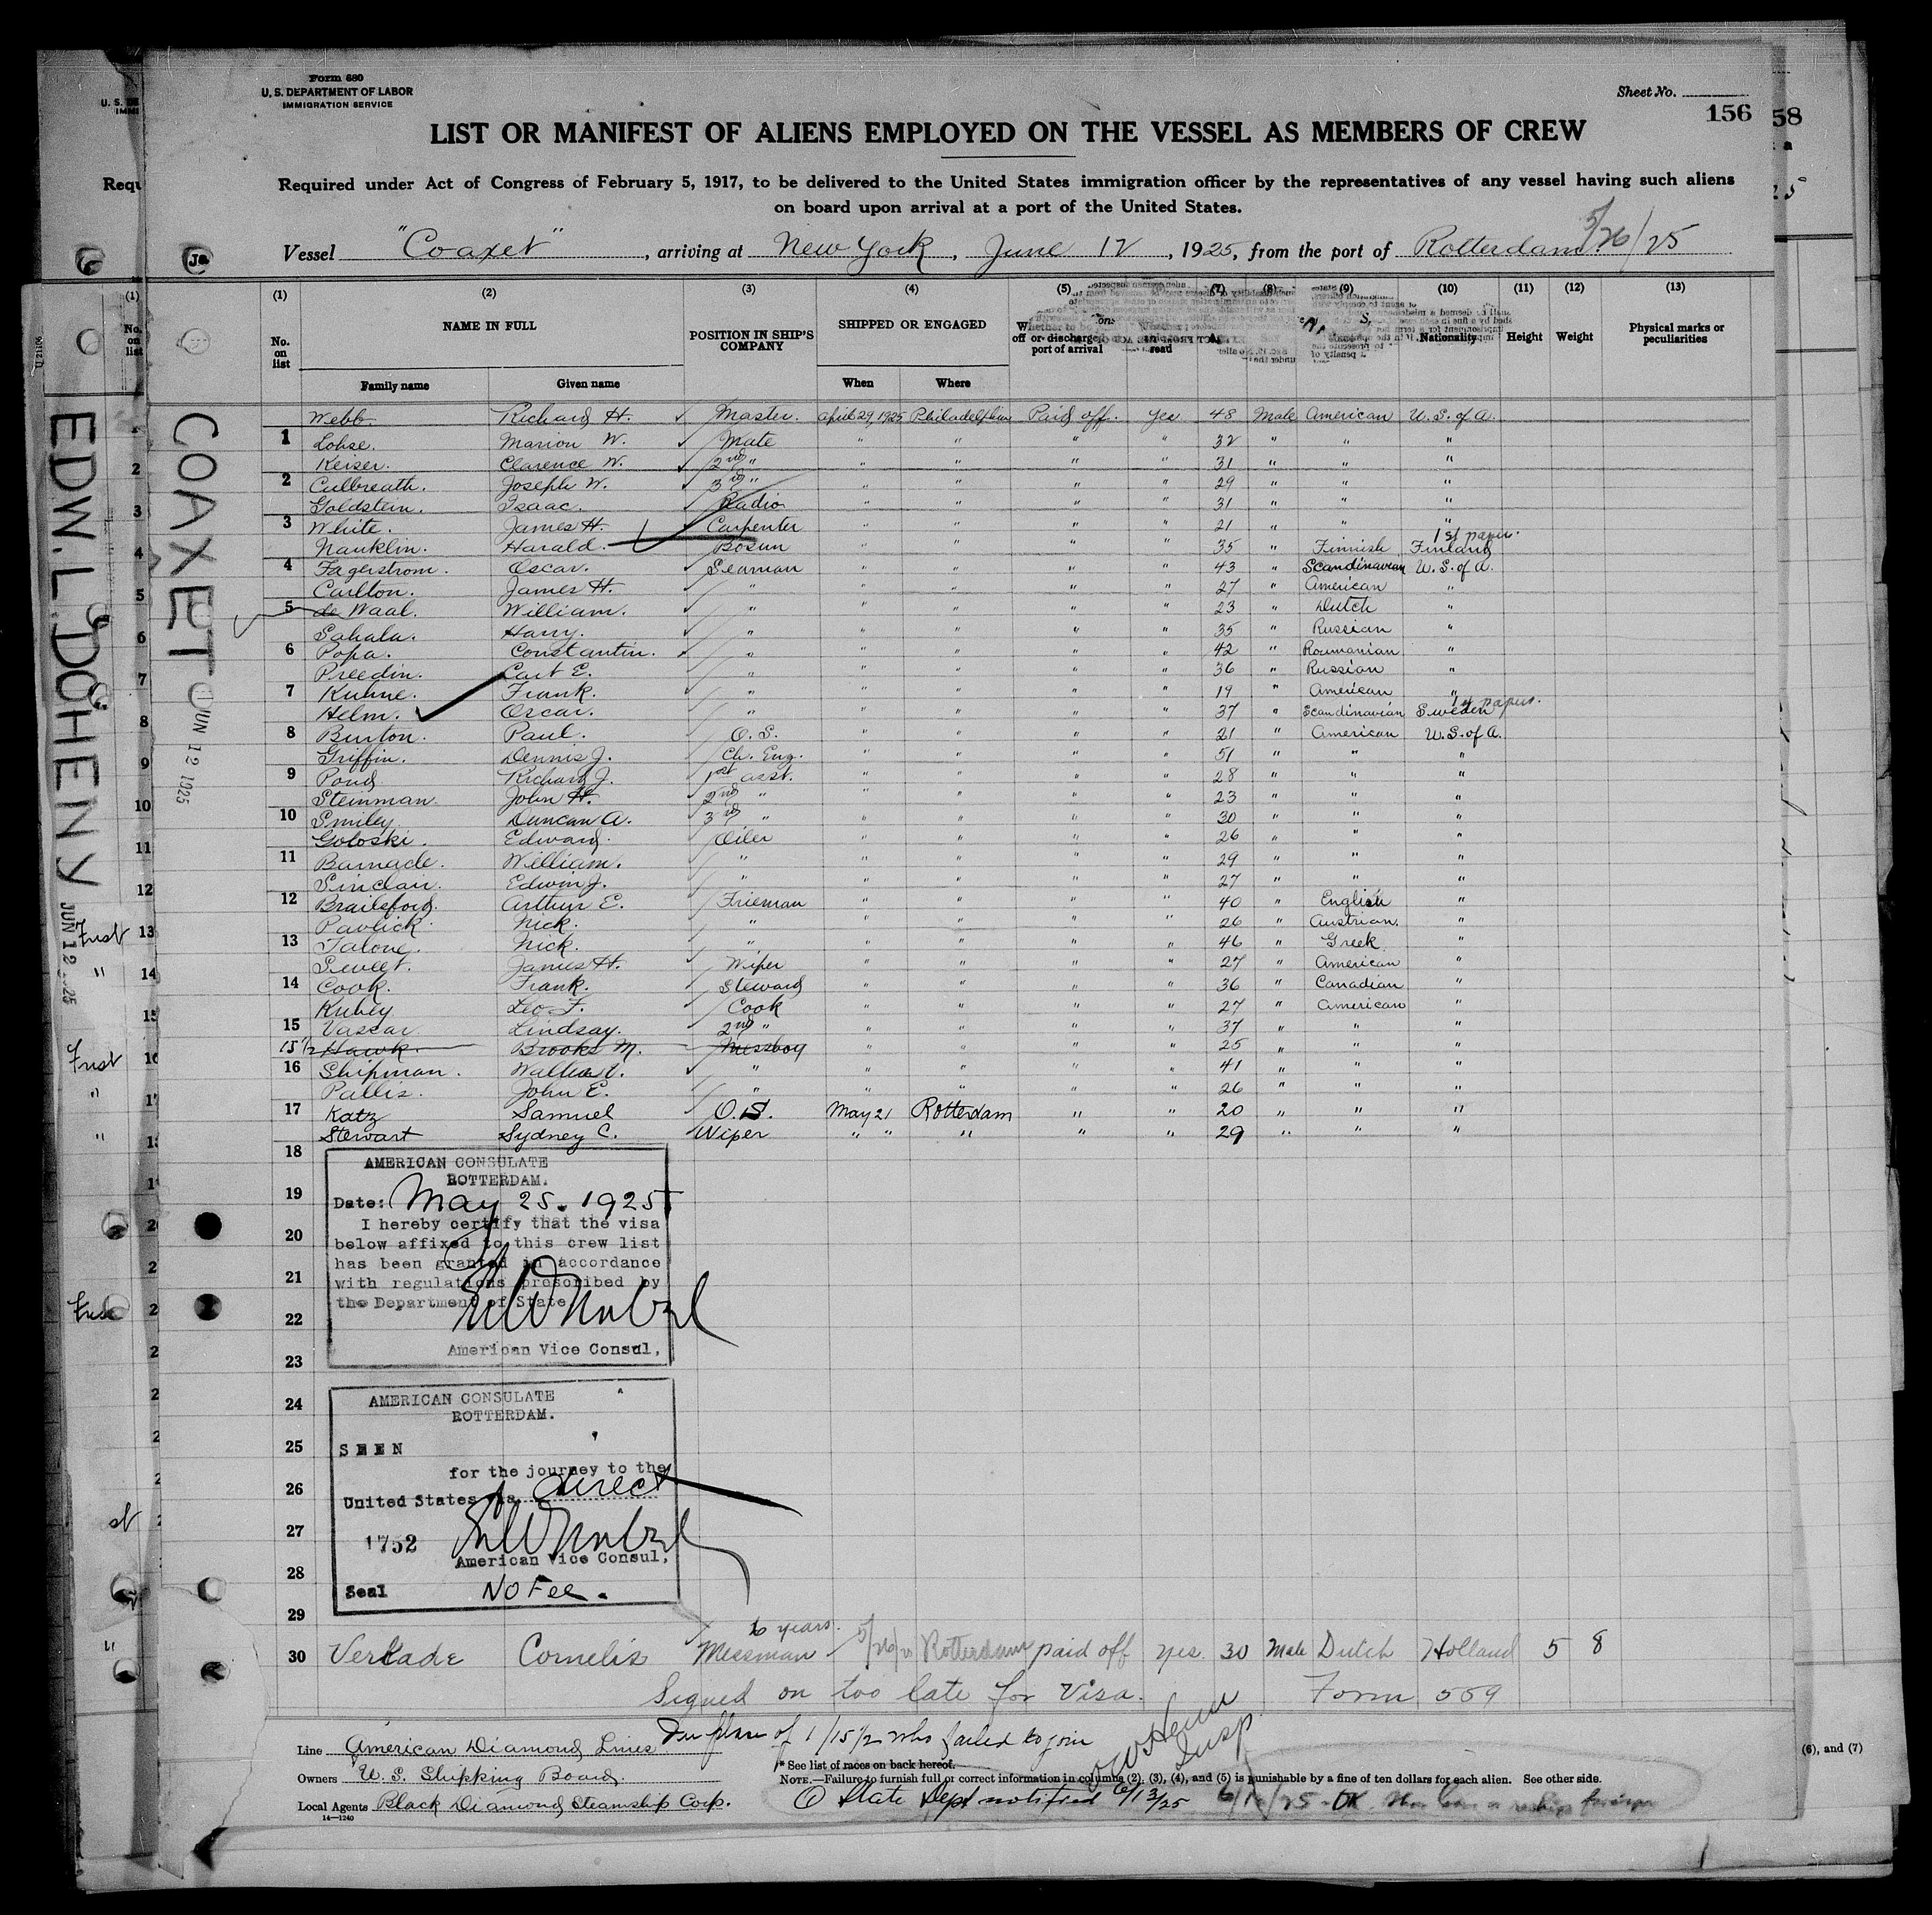 Form 680
U. S. DEPARTMENT OF LABOR
IMMIGRATION SERVICE
Sheet No.
156
58
LIST OR MANIFEST OF ALIENS EMPLOYED ON THE VESSEL AS MEMBERS OF CREW
Required under Act of Congress of February 5, 1917, to be delivered to the United States immigration officer by the representatives of any vessel having such aliens
on board upon arrival at a port of the United States.
Vessel "Coaxet", arriving at New York, June 12, 1925, from the port of Rotterdam. 5/26/25
(1) (2) (3) (4) (5) (7) (8) (9) (10) (11) (12) (13)
No. on list NAME IN FULL POSITION IN SHIP'S COMPANY SHIPPED OR ENGAGED Whether to be off or discharged port of arrival read Nationality Height Weight Physical marks or peculiarities
Family name Given name When Where
Webb Richard H. Master. April 29, 1925 Philadelphia Paid off. yes 48 Male American U. S. of A.
1 Lohse. Marion W. Mate " " " " 32 " " "
Keiser. Clarence W. 2nd " " " " " 31 " " "
2 Culbreath. Joseph W. 3rd " " " " " 29 " " "
Goldstein. Isaac. Radio " " " " 31 " " "
3 White. James H. Carpenter " " " " 21 " " "
Nanklin. Harald. Bosun " " " " 35 " Finnish Finland 1st paper.
4 Fagerstrom. Oscar. Seaman " " " " 43 " Scandinavian U. S. of A.
Carlton. James H. " " " " " 27 " American "
5 de Waal. William. " " " " " 23 " Dutch "
Sahala. Harry. " " " " " 35 " Russian "
6 Popa. Constantin. " " " " " 42 " Roumanian "
Preedin. Carl E. " " " " " 36 " Russian "
7 Kuhne. Frank. " " " " " 19 " American "
Helm. Oscar. " " " " " 37 " Scandinavian Sweden 1st papers.
8 Burton. Paul. O. S. " " " " 21 " American U. S. of A.
Griffin. Dennis J. Ch. Eng. " " " " 51 " " "
9 Pond Richard J. 1st asst. " " " " 28 " " "
Steinman. John H. 2nd " " " " " 23 " " "
10 Smiley Duncan A. 3rd " " " " " 30 " " "
Goloski. Edward. Oiler " " " " 26 " " "
11 Barnade. William. " " " " " 29 " " "
Sinclair. Edwin J. " " " " " 27 " " "
12 Brailsford. Arthur E. Frieman " " " " 40 " English "
Pavlick. Nick. " " " " " 26 " Austrian. "
13 Talone. Nick. " " " " " 46 " Greek. "
Sweet. James H. Wiper " " " " 27 " American "
14 Cook. Frank. Steward " " " " 36 " Canadian "
Kubey Leo F. Cook " " " " 27 " American "
15 Vassar Lindsay. 2nd " " " " " 37 " " "
15 1/2 Hawk. Brooks M. Messboy " " " " 25 " " "
16 Shipman. " " " " " 41 " " "
Pallis. John E. " " " " " 26 " " "
17 Katz Samuel O.S. May 21 Rotterdam " " 20 " " "
Stewart Sydney C. Wiper " " " " " 29 " " "
18
19
20
21
22
23
24
25
26
27
28
29
AMERICAN CONSULATE
ROTTERDAM.
Date: May 25. 1925
I hereby certify that the visa
below affixed to this crew list
has been granted in accordance
with regulations prescribed by
the Department of State
American Vice Consul,
AMERICAN CONSULATE
ROTTERDAM.
SEEN
for the journey to the
United States via direct
1752
American Vice Consul,
Seal No Fee.
6 years.
30 Verkade Cornelis Messman 5/26/25 Rotterdam paid off yes. 30 Male Dutch Holland 5 8
Signed on too late for Visa. Form 559
In place of 1/15 1/2 who failed to join
Insp.
Line American Diamond Lines
Owners U. S. Shipping Board
Local Agents Black Diamond Steamship Corp.
14—1240
* See list of races on back hereof.
NOTE.—Failure to furnish full or correct information in columns (2), (3), (4), and (5) is punishable by a fine of ten dollars for each alien. See other side.
State Dept notified 6/13/25
OK
(6), and (7)
COAXET
JUN 12 1925
EDW. L. DOHENY
JUN 12 25
First
"
First
"
"